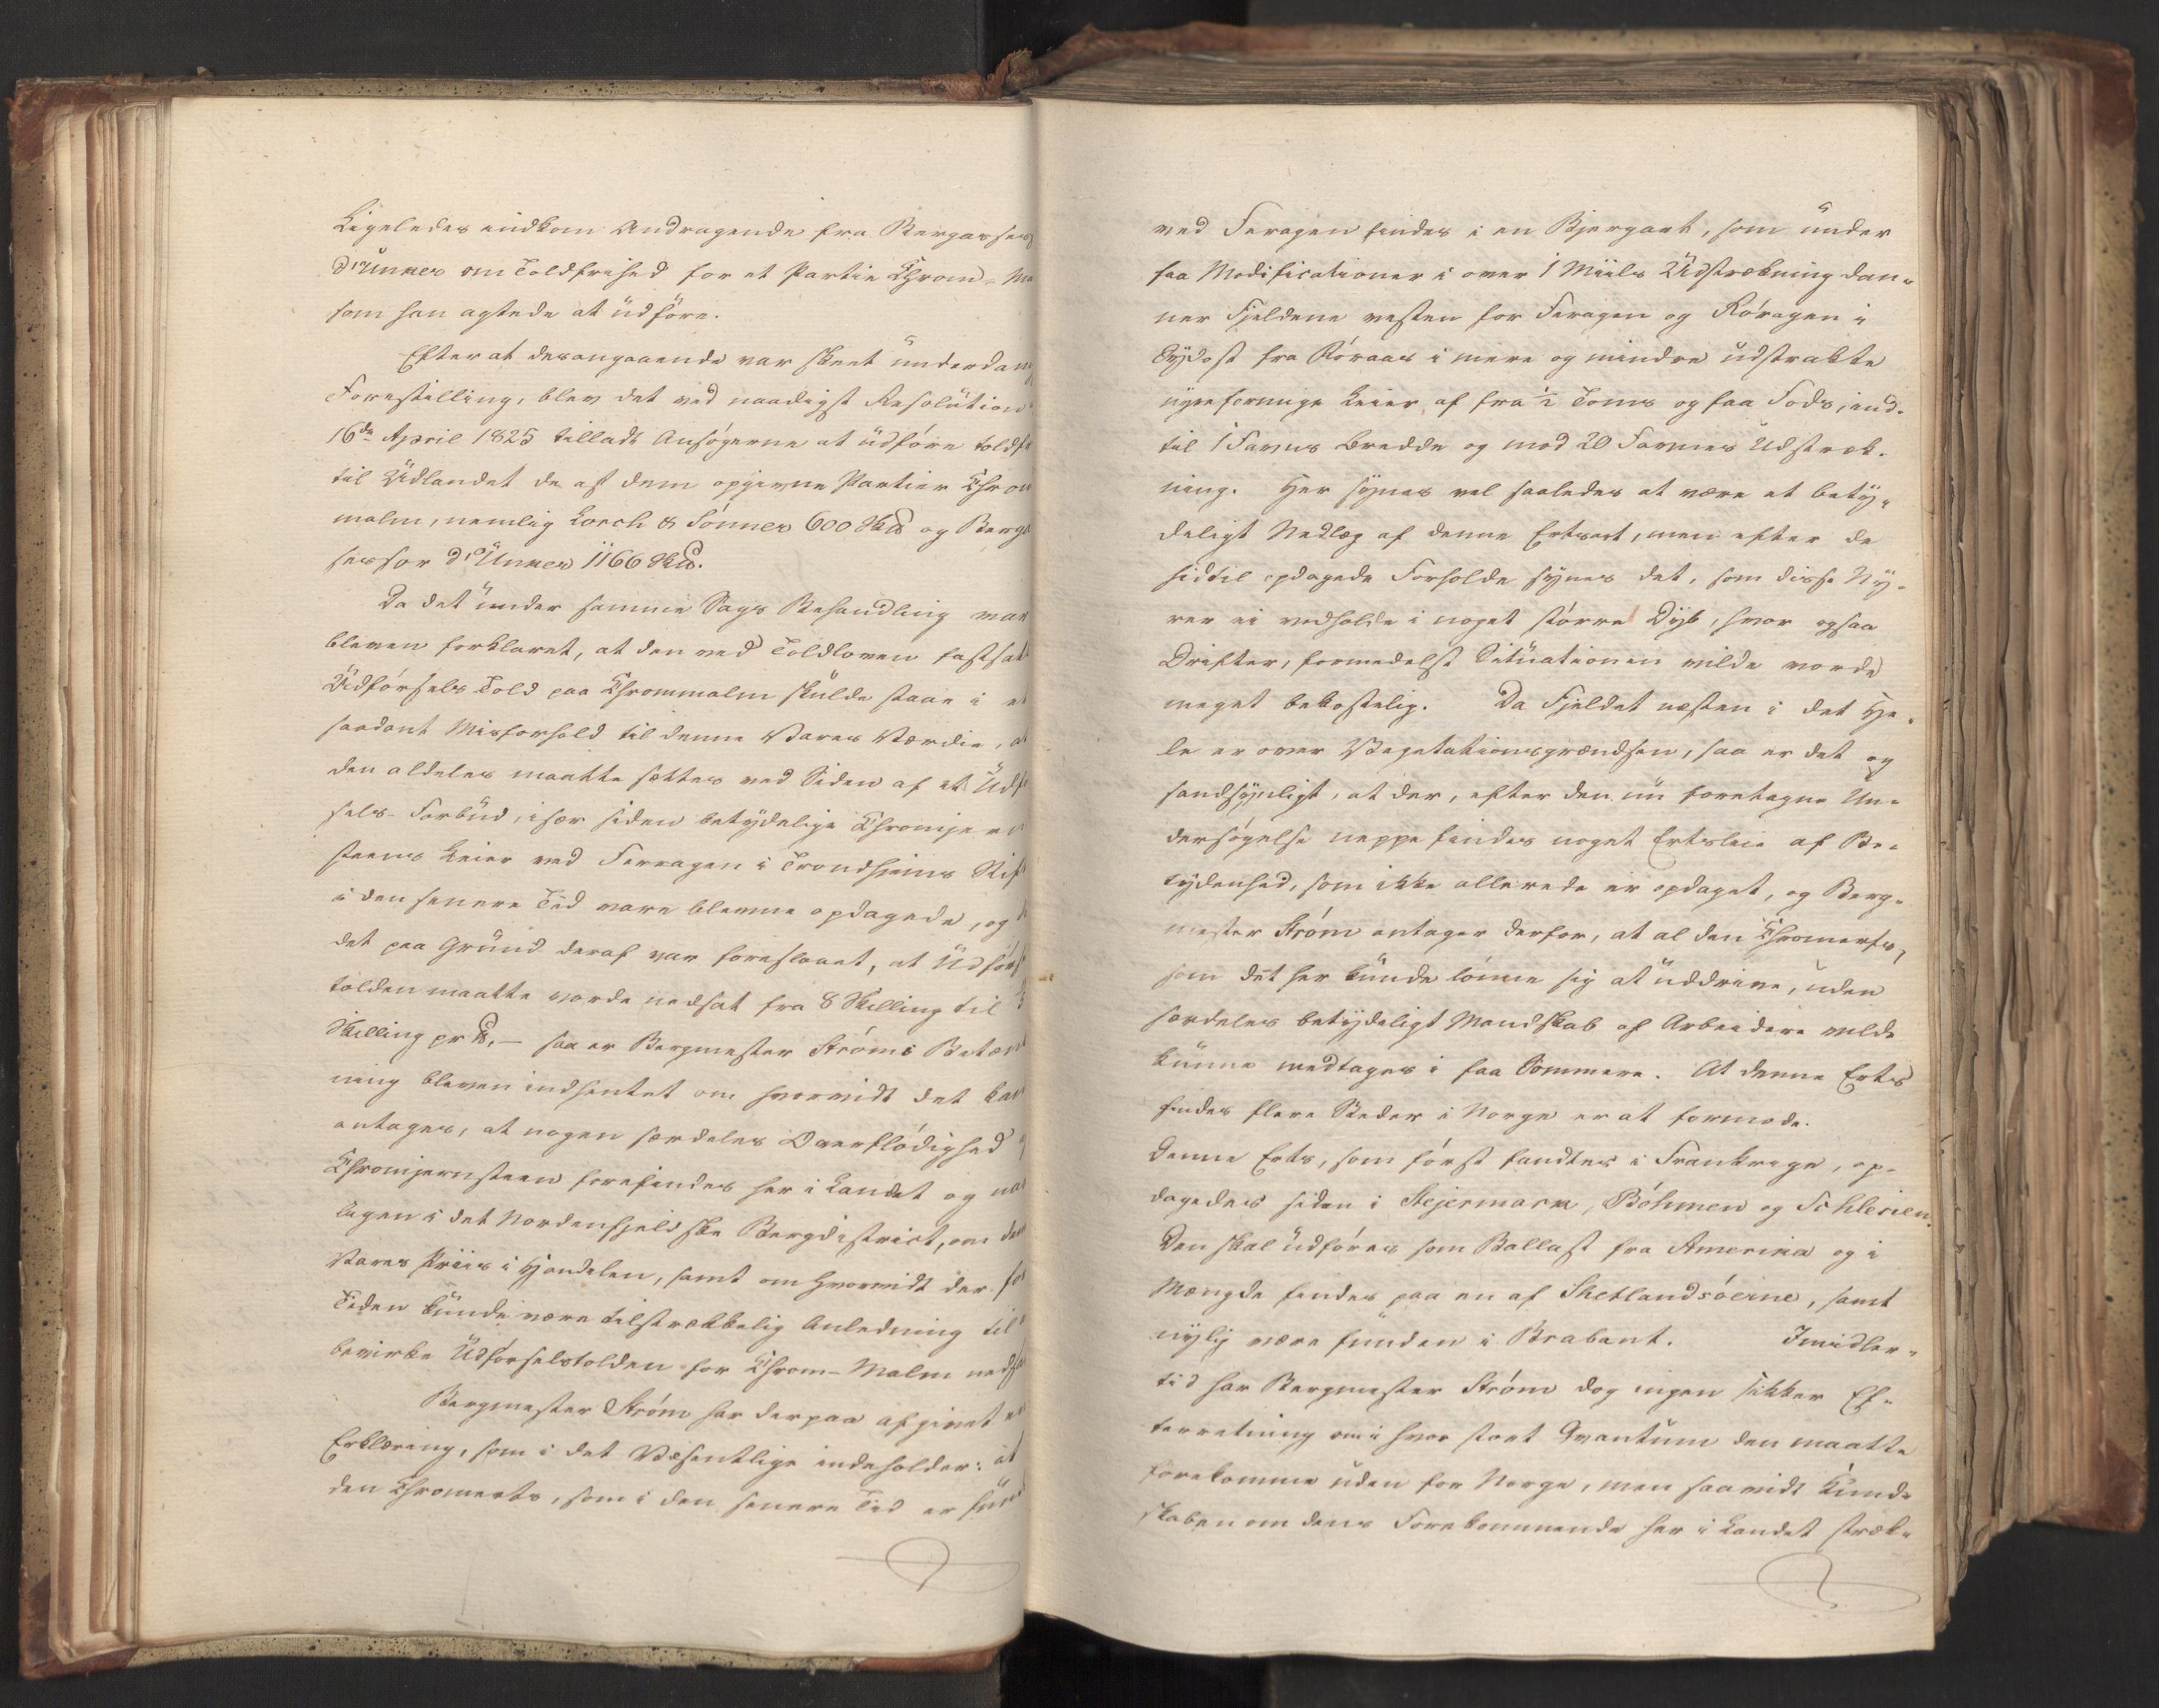 Ligeledes indkom Andragende fra Bergasses
d'Unker om Toldfrihed for et Partie Chrom-Ma
som han agtede at udføre.
Efter at desangaaende var skeet underdan
Forestilling, blev det ved naadigst Resolution
16de April 1825 tilladt Ansøgerne at udføre toldf
til Udlandet de af dem opgivne Partier Chrom
malm, nemlig Lorch & Sønner 600 Sk℔ og Berga
sessor d'Unker 1166 Sk℔.
Da det under samme Sags Behandling var
bleven forklaret, at den ved Toldloven fastsat
Udførsels Told paa Chrommalm skulde staae i et
saadant Misforhold til denne Vares Værdie, at
den aldeles maatte sættes ved Siden af et Udf
sels-Forbud, især siden betydelige Chromjern
steens Leier ved Ferragen i Trondhjems Stift
i den senere Tid vare blevne opdagede, og d
det paa Grund deraf var foreslaaet, at Udførs
tolden maatte vorde nedsat fra 8 Skilling til
Skilling pr ℔, — saa er Bergmester Strøms Betænk
ning bleven indhentet om hvorvidt det kan
antages, at nogen særdeles Overflødighed
Chromjernsteen forefindes her i Landet og nav
ligen i det Nordenfjeldske Bergdistrict, om den
Vares Priis i Handelen, samt om hvorvidt der for
Tiden kunde være tilstrækkelig Anledning til
bevirke Udførselstolden for Chrom-Malm neds
Bergmester Strøm har derpaa afgivet en
Erklæring, som i det Væsentlige indeholder: at
den Chromerts, som i den senere Tid er fund
ved Feragen findes i en Bjergart, som under
faa Modificationer i over 1 Miils Udstrækning dan-
ner Fjeldene vesten for Feragen og Røragen i
Sydost fra Røraas i mere og mindre udstrakte
nyreformige Leier af fra ½ Toms og faa Fods, ind-
til 1 Favns Bredde og med 20 Favnes Udstræk-
ning. Her synes vel saaledes at være et bety-
deligt Nedlæg af denne Ertsart, men efter de
hidtil opdagede Forholde synes det, som disse Ny-
rer ei vedholde i noget større Dyb, hvor ogsaa
Driften, formedelst Situationen vilde vorde
meget bekostelig. Da Fjeldet næsten i det He-
le er over Vegetationsgrændsen, saa er det og
sandsynligt, at der, efter den nu foretagne Un-
dersøgelse neppe findes noget Ertsleie af Be-
tydenhed, som ikke allerede er opdaget, og Berg-
mester Strøm antager derfor, at al den Chromerts,
som det her kunde lønne sig at uddrive, uden
særdeles betydeligt Mandskab af Arbeidere vilde
kunne medtages i faa Sommere. At denne Erts
findes flere Steder i Norge er at formode.
Denne Erts, som først fandtes i Frankrige, op-
dagedes siden i Stejermark, Böhmen og Schlesien.
Den skal udføres som Ballast fra Amerika og i
Mængde findes paa en af Shetlandsøerne, samt
nylig være funden i Brabant. Imidler-
tid har Bergmester Strøm dog ingen sikker Ef-
terretning om i hvor stort Qvantum den maatte
forekomme uden for Norge, men saavidt Kund-
skaben om dens Forekommende her i Landet stræk-